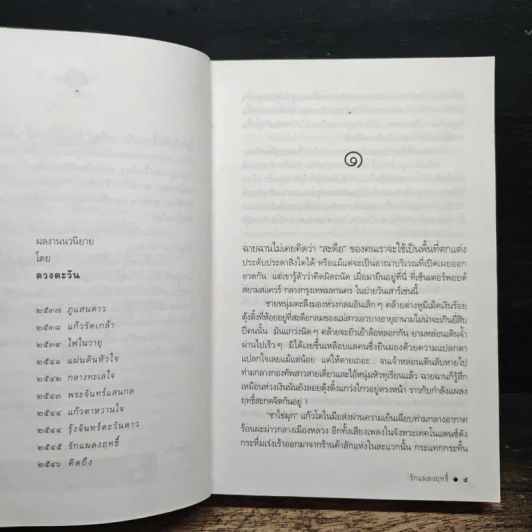 ผลงานนวนิยาย
โดย
ดวงตะวัน
๒๕๓๗ ภูแสนดาว
๒๕๔๐ แก้วรัดเกล้า
๒๕๔๐ ไฟในวายุ
๒๕๔๑ แผ่นดินหัวใจ
๒๕๔๒ กลางทะเลใจ
๒๕๔๓ พระจันทร์แสนกล
๒๕๔๔ แก้วตาหวานใจ
๒๕๔๔ รุ้งจันทร์ตะวันดาว
๒๕๔๕ รักแผลงฤทธิ์
๒๕๔๖ คิดถึง
๑
ฉายฉานไม่เคยคิดว่า "สะดือ" ของคนเราจะใช้เป็นพื้นที่ตกแต่ง
ประดับประดาสิ่งใดได้ หรือแม้แต่จะเป็นอาณาบริเวณที่เปิดเผยออก
อวดกัน แต่เขารู้ตัวว่าคิดผิดถนัด เมื่อมายืนอยู่ที่นี่ ที่เซ็นเตอร์พอยต์
สยามสแควร์ กลางกรุงเทพมหานคร ในบ่ายวันเสาร์เช่นนี้
ชายหนุ่มตะลึงมองห่วงกลมอันเล็กๆ คล้ายต่างหูมีเม็ดเงินร้อย
ตุ้งติ้งที่ห้อยอยู่ที่สะดือกลมของแม่สาวเอวบางอายุอานามไม่น่าจะเกินยี่สิบ
ปีคนนั้น มันแกว่งนิดๆ คล้ายจะยั่วเย้าล้อหลอกกัน ยามหล่อนเดินฉ่ำ
ผ่านไปเร็วๆ มิได้เงยขึ้นเหลือบแลคนซึ่งยืนมองด้วยความแปลกตา
แปลกใจเลยแม้แต่น้อย แต่ให้ตายเถอะ... จนเจ้าหล่อนเดินลับหายไป
ท่ามกลางกองทัพสาวสายเดี่ยวและไอ้หนุ่มหัวทุเรียนแล้ว ฉายฉานก็รู้สึก
เหมือนห่วงเงินนั่นยังลอยตุ้งติ้งแกว่งไกวอยู่ตรงหน้า ราวกับกำลังแผลง
ฤทธิ์สะกดจิตกันอยู่ !
"ชาไข่มุก" แก้วโตในมือส่งผ่านความเย็นเฉียบท่ามกลางอากาศ
ร้อนผะผ่าวกลางเมืองหลวง อีกทั้งเสียงเพลงในจังหวะเทคโนแดนซ์ดัง
กระหึ่มเร่งเร้าออกมาจากร้านค้าสักแห่งในละแวกนั้น กระแทกกระทั้น
รักแผลงฤทธิ์ ● ๕